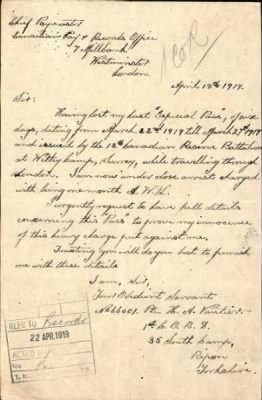 Chief Paymaster
Canadian Pay & Records Office
7 Millbank
Westminster
London.
April 19th 1919.
Sir:
Having lost my last "Special Pass", of six
days, dating from March 22nd 1919 till March 27th 1919
and issued by the 12th Canadian Reserve Battalion
at Witley Camp, Surrey, while travelling through
London. I am now under close arrest charged
with being one month A.W.L.
I urgently request to have full details
concerning this "Pass" to prove my innocence
of this heavy charge put against me.
Trusting you will do your best to furnish
me with these details
I am, Sir,
Your Obedient Servant
Pte. H. A.
1st C.O.R.D.
South Camp,
Ripon
Yorkshire.
REFD TO Records
22 APR. 1919